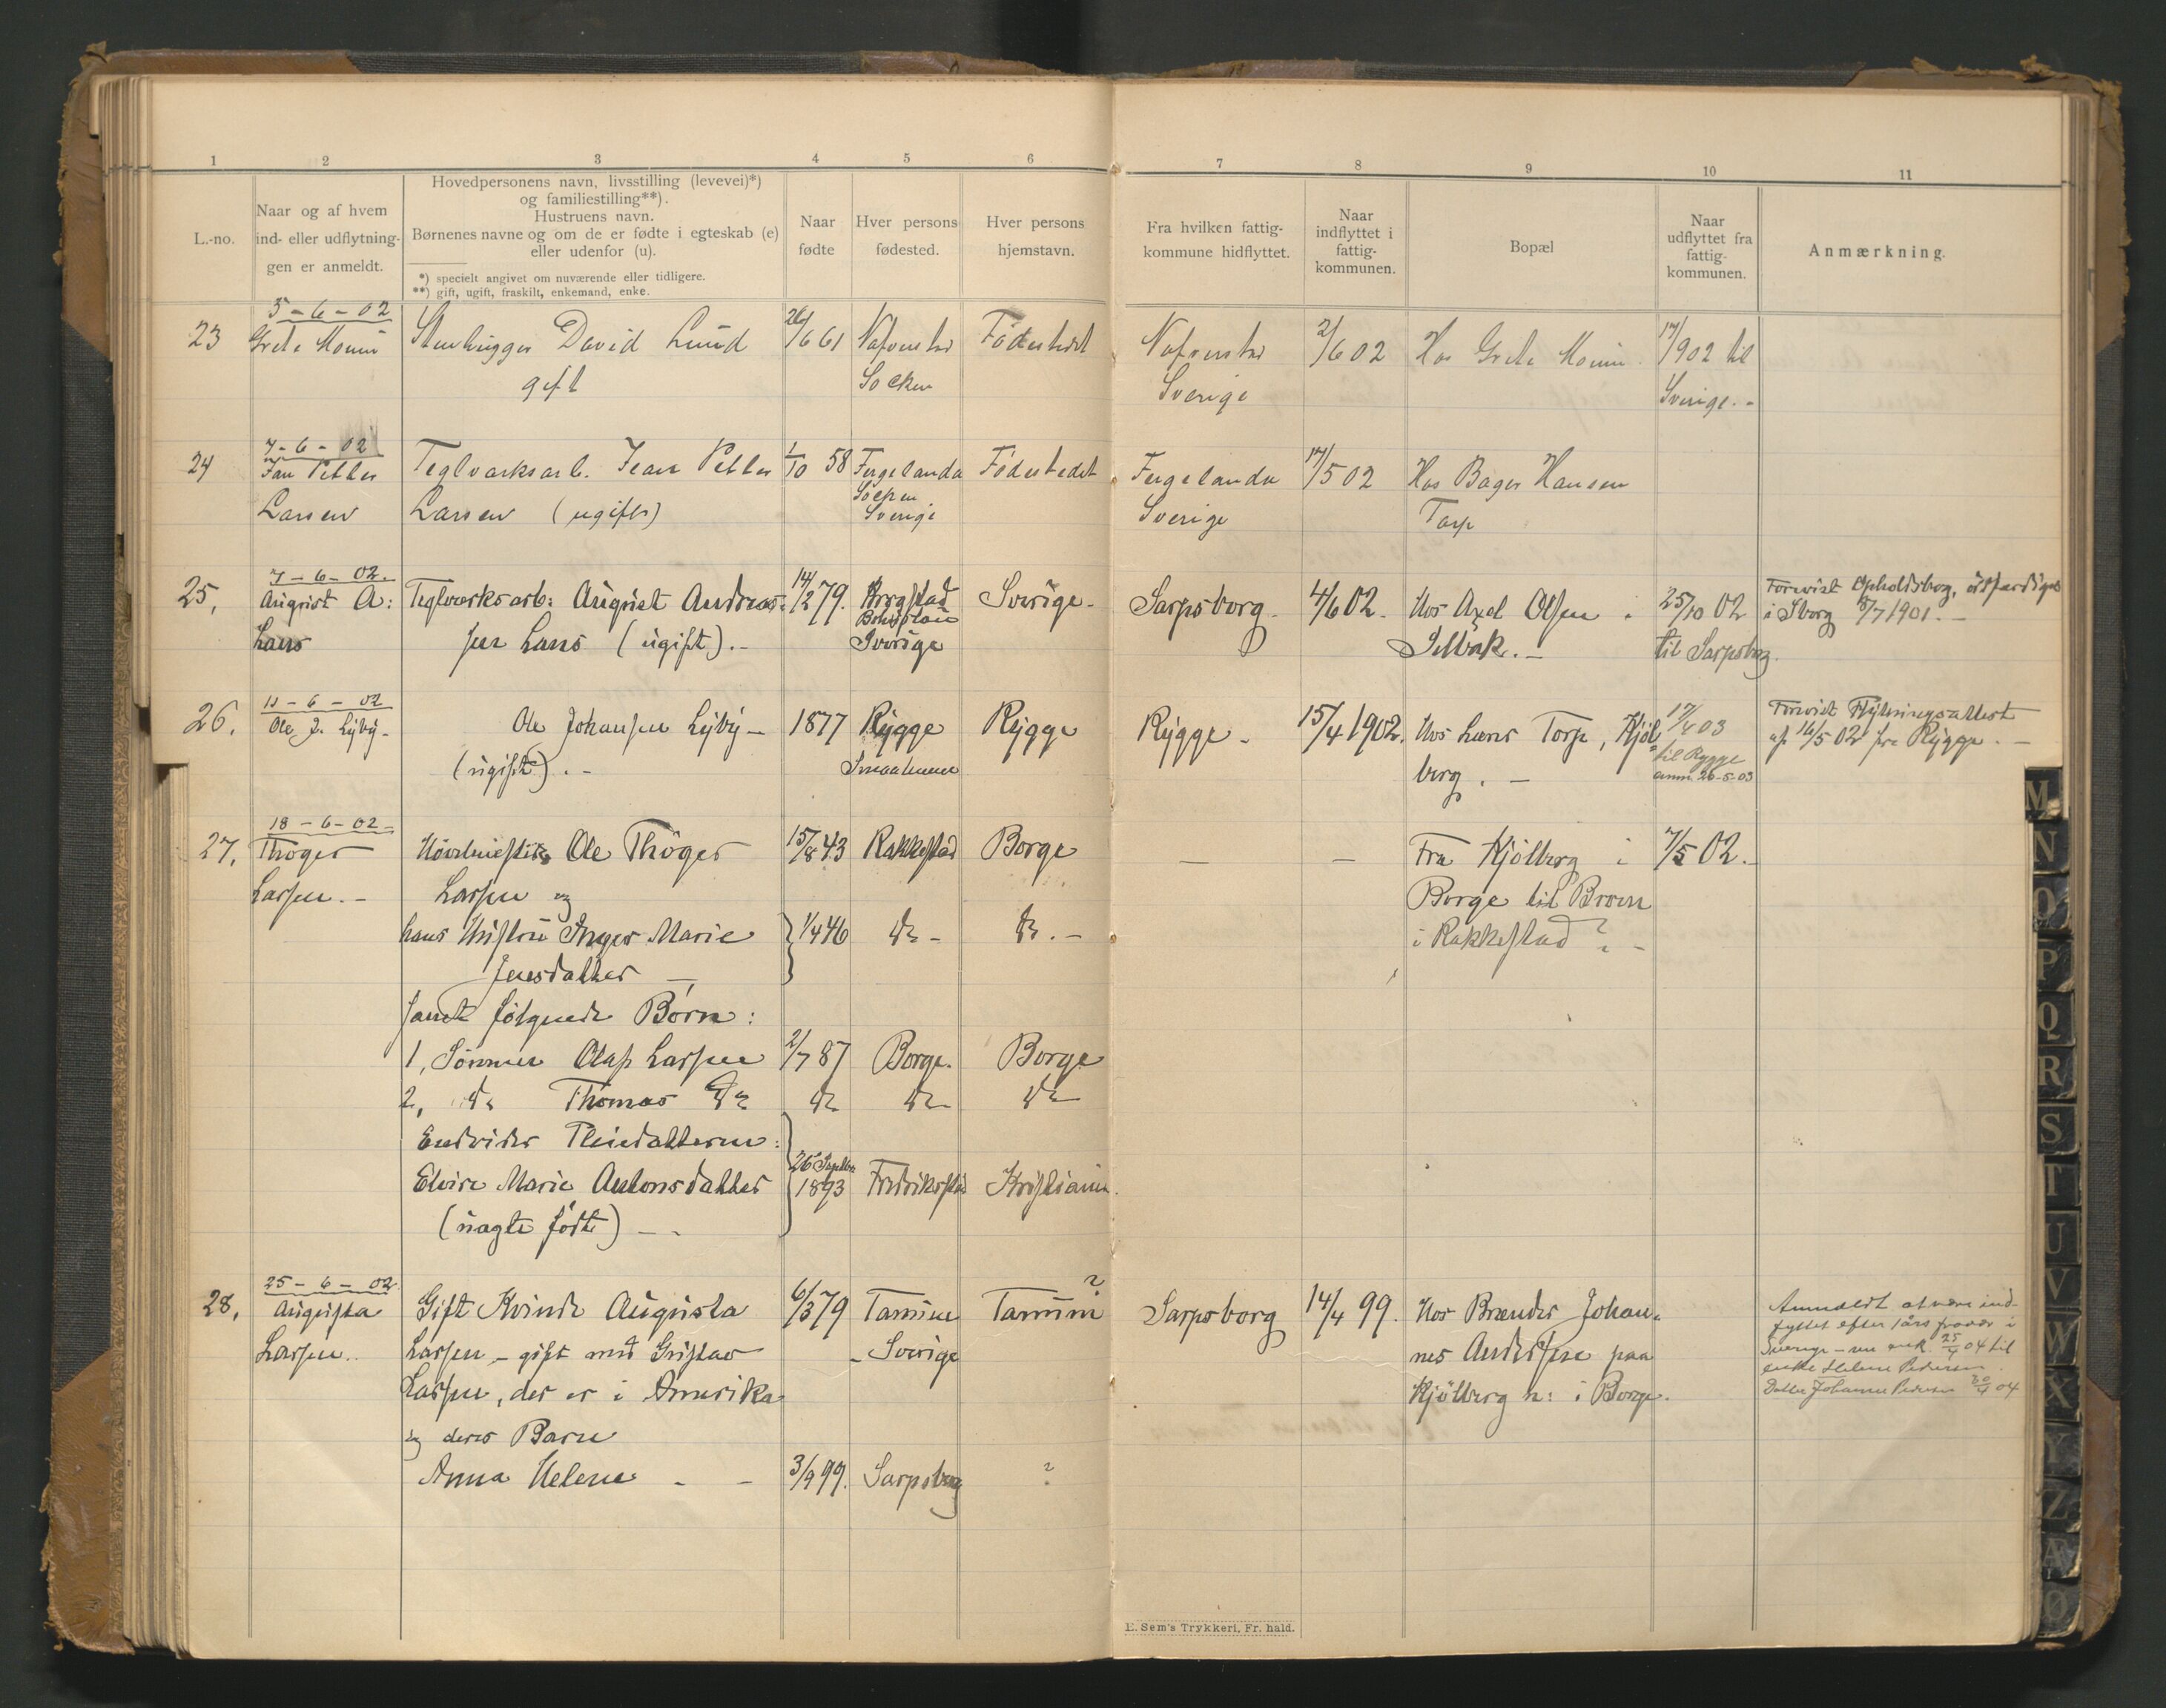 1 2 3 4 5 6 7 8 9 10 11
L.-no.
Naar og af hvem
ind- eller udflytning-
gen er anmeldt.
Hovedpersonens navn, livsstilling (levevei)*)
og familiestilling**).
Hustruens navn.
Børnenes navne og om de er fødte i egteskab (e)
eller udenfor (u).
*) specielt angivet om nuværende eller tidligere.
**) gift, ugift, fraskilt, enkemand, enke.
Naar
fødte
Hver persons
fødested.
Hver persons
hjemstavn.
Fra hvilken fattig-
kommune hidflyttet.
Naar
indflyttet i
fattig-
kommunen.
Bopæl
Naar
udflyttet fra
fattig-
kommunen.
Anmærkning.
5-6-02
23 Grete Stenhugger David Lund 26/6 61 Fødestedet 2/6 02 Hos Grete 17/9 02 til
gift Socken Sverige Sverige.-
7-6-02
24 Jan Petter Teglværksarb. Jean Petter 1/10 58 Fergelanda Fødestedet Fergelanda 17/5 02 Hos Bager Hansen
Larsen Larsen (ugift) Socken Sverige Torp
Sverige
7-6-02.
25, August A: Teglværksarb: August Andreas- 14/2 79. Sverige- Sarpsborg. 4/6 02. Hos Axel Olsen i 25/10 02 Forevist Opholdsbog,
Lans sen Lans (ugift).- Sverige Selbak.- til Sarpsborg. i Sborg 1901.-
11-6-02
26. Ole J. Lyby- Ole Johansen Lyby- 1877 Rygge Rygge Rygge- 15/4 1902. Hos Hans Torp, Kjøl- 17/4 03 Forevist Flytningsattest
(ugift).- Smaalenene berg.- til Rygge af 16/5 02 fra Rygge.-
anm. 26-5-03
18-6-02-
27, Thøger Ole Thøger 15/8 43 Rakkestad Borge - - Fra Kjølberg i 7/5 02.-
Larsen.- Larsen og Borge til Broen
hans Hustru Inger Marie 1/4 46 do- do.- i Rakkestad ?-
Jensdatter-
samt følgende Børn:
1, Sønnen Olaf Larsen 2/7 87 Borge. Borge
2, do Thomas do do do do
Endvider Pleiedatteren:
Elvire Marie Antonsdatter 26 Septbr. 1893 Fredrikstad Kristiania.
(uægte født)-
25-6-02
28, Augusta Gift Kvinde Augusta 6/3 79 Tanum Tanum ? Sarpsborg 14/4 99. Hos Brænder Johan- Anmeldt at være ind-
Larsen.. Larsen - gift med Gustav - Sverige nes Andersen paa flyttet efter 1 års fravær i
Larsen, der er i Amerika Kjølberg n: i Borge. Sverige - 25/4 04 til
og deres Barn enke Helene Pedersen
Anna Helene - - 3/9 99. Sarpsborg ? Johanne Pedersen 30/4 04
E. Sem's Trykkeri, Fr. hald.
M
N
O
P
Q
R
S
T
U
V
W
X
Y
Z
Æ
Ø